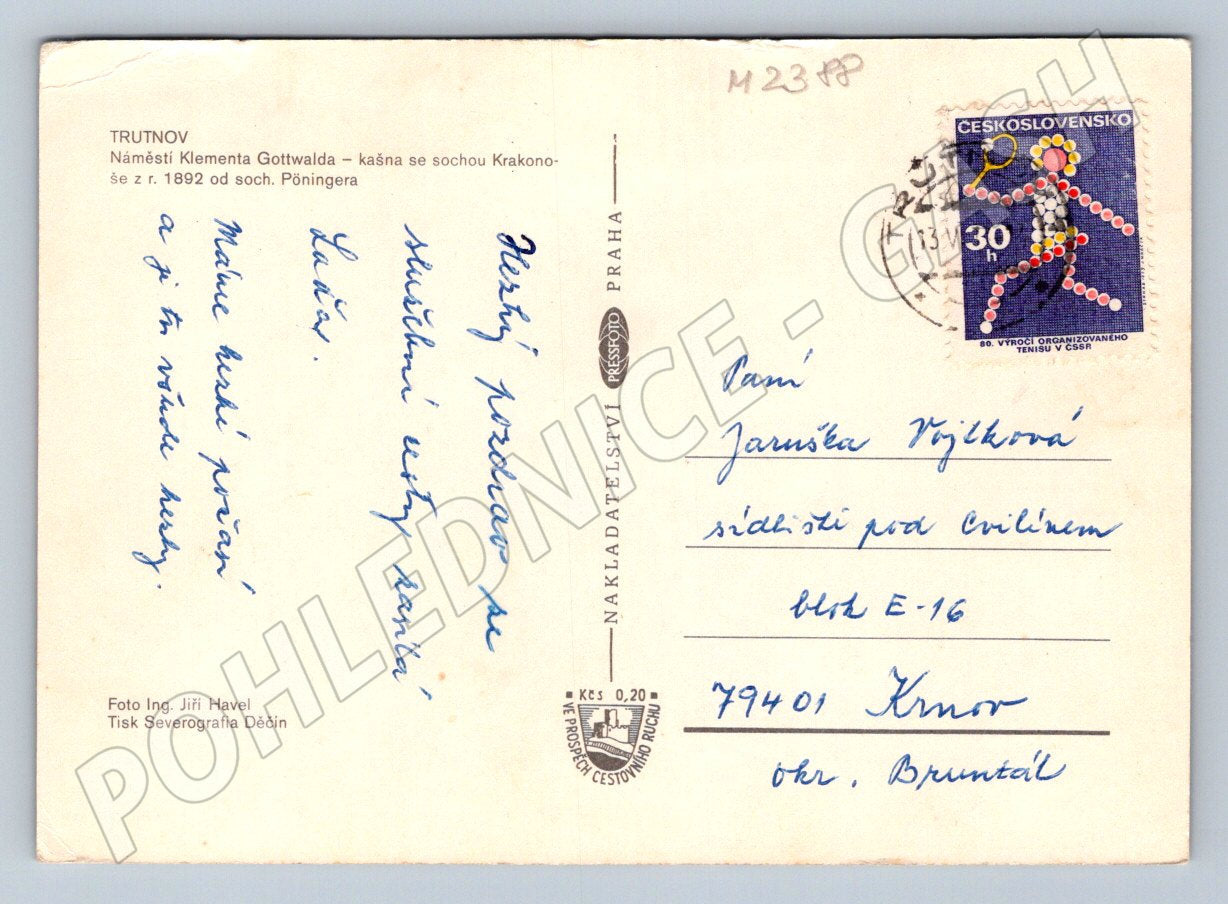 M 2388
TRUTNOV
Náměstí Klementa Gottwalda – kašna se sochou Krakono-
še z r. 1892 od soch. Pöningera
Hezký pozdrav se
služební cesty zasílá
Laďa.
Máme hezké počasí
a je tu všude hezky.
Foto Ing. Jiří Havel
Tisk Severografia Děčín
NAKLADATELSTVÍ PRESSFOTO PRAHA
Kčs 0,20
VE PROSPĚCH CESTOVNÍHO RUCHU
ČESKOSLOVENSKO
30
h
80. VÝROČÍ ORGANIZOVANÉHO
TENISU V ČSSR
13.V
Paní
Jaruška Vojtková
sídliště pod Cvilínem
blok E-16
79401 Krnov
okr. Bruntál
POHLEDNICE - CZ.CH